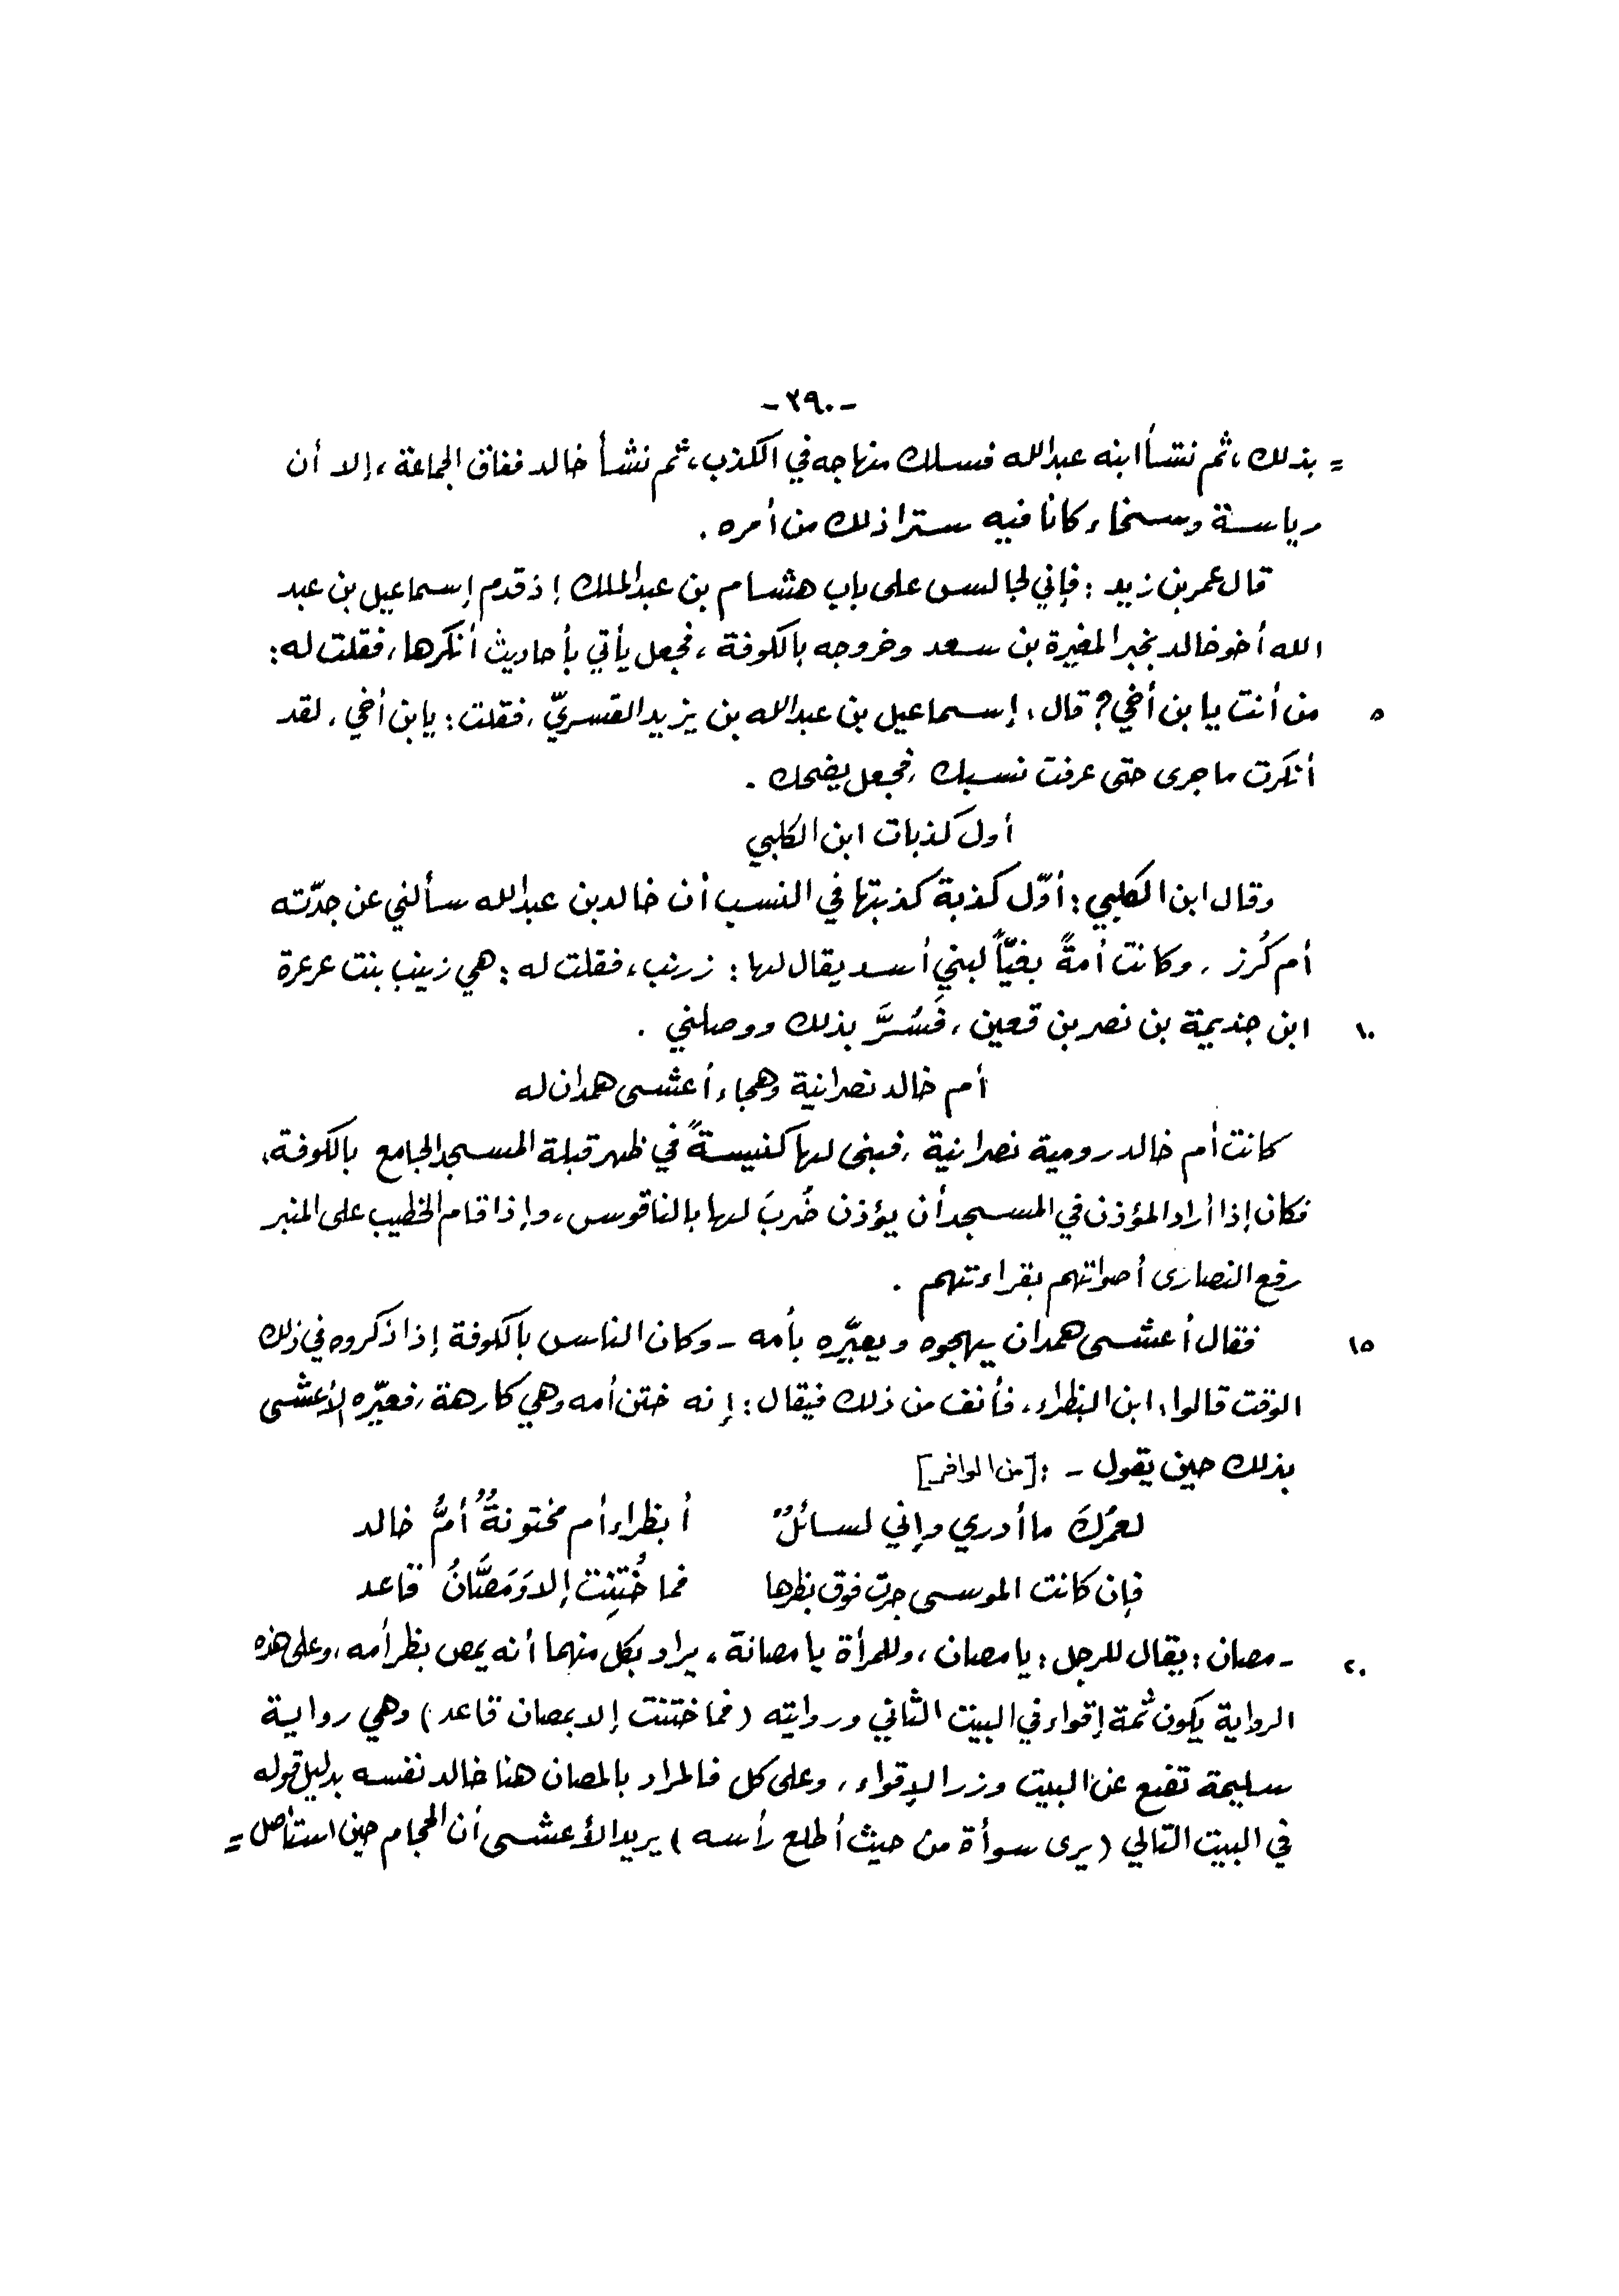 -٢٩٠-
= بذلك، ثم نشأ ابنه عبدالله فسلك منهاجه في الكذب، ثم نشأ خالد ففاق الجماعة، إلا أن
رياسة وسخاء كانا فيه سترا ذلك من أمره.
قال عمر بن زيد: فإني لجالس على باب هشام بن عبدالملك إذ قدم إسماعيل بن عبد
الله أخو خالد بخبر المغيرة بن سعد وخروجه بالكوفة، فجعل يأتي بأحاديث أنكرها، فقلت له:
٥ من أنت يا بن أخي؟ قال: إسماعيل بن عبدالله بن يزيد القسريّ، فقلت: يابن أخي، لقد
أنكرت ما جرى حتى عرفت نسبك، فجعل يضحك.
أول كذبات ابن الكلبي
وقال ابن الكلبي: أوّل كذبة كذبتها في النسب أن خالد بن عبدالله سألني عن جدّته
أم كُرز، وكانت أمةً بغيّاً لبني أسد يقال لها: زرنب، فقلت له: هي زينب بنت عرعرة
١٠ ابن جذيمة بن نصر بن قعين، فَسُرَّ بذلك ووصلني.
أم خالد نصرانية وهجاء أعشى همدان له
كانت أم خالد رومية نصرانية، فبنى لها كنيسةً في ظهر قبلة المسجد الجامع بالكوفة،
فكان إذا أراد المؤذن في المسجد أن يؤذن ضُربَ لها بالناقوس، وإذا قام الخطيب على المنبر
رفع النصارى أصواتهم بقراءتهم.
١٥ فقال أعشى همدان يهجوه ويعيّره بأمه - وكان الناس بالكوفة إذا ذكروه في ذلك
الوقت قالوا: ابن البظراء، فأنف من ذلك فيقال: إنه ختن أمه وهي كارهة، فعيّره الأعشى
بذلك حين يقول -: [من الوافر]
لعمرُكَ ما أدري وإني لسائلٌ أبظراء أم مختونةٌ أمُّ خالد
فإن كانت الموسى جرت فوق بظرها فما خُتِنت إلا وَمَصَّانُ قاعد
٢٠ - مصان: يقال للرجل: يا مصان، وللمرأة يا مصانة، يراد بكل منهما أنه يمص بظر أمه، وعلى هذه
الرواية يكون ثمة إقواء في البيت الثاني وروايته (فما ختنت إلا بمصان قاعد) وهي رواية
سليمة تضع عن البيت وزر الإقواء، وعلى كل فالمراد بالمصان هنا خالد نفسه بدليل قوله
في البيت التالي (يرى سوأة من حيث أطلع رأسه) يريد الأعشى أن الحجام حين استأصل =